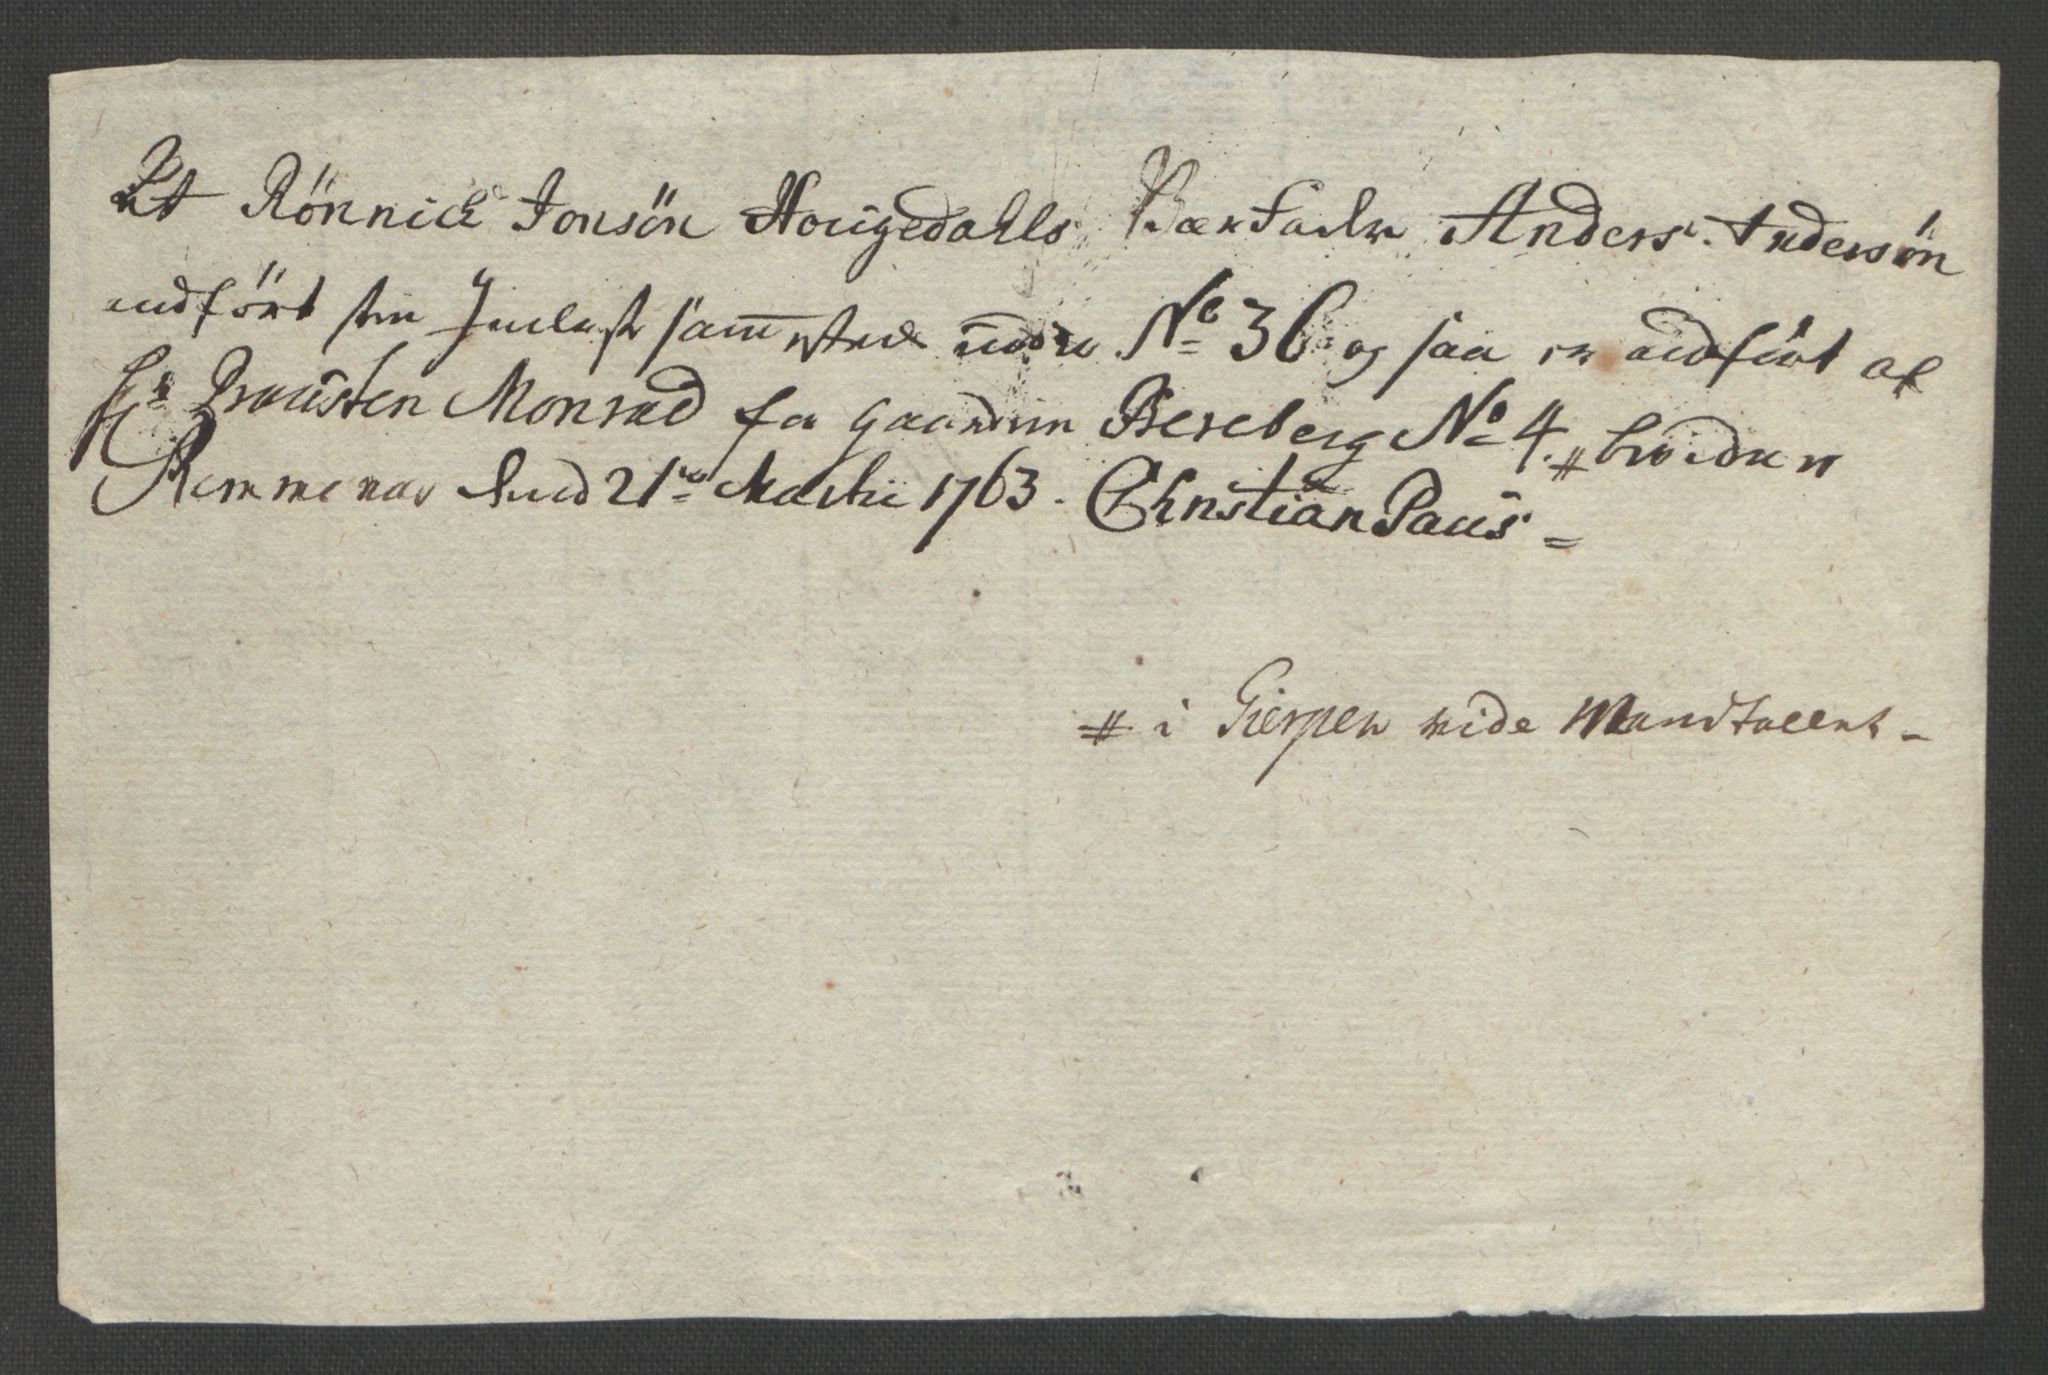 At Rönnich Jonsön Hougedahls Værfader Anders Andersön
andfört som Inderst sammested under No 36 og saa er andfört af
Hr Prousten Monrad fra gaarden Bereberg No 4 # bevidner
Remmenes dend 21de Martii 1763. Christian Paus =
# i Gierpen vide Mandtallet -